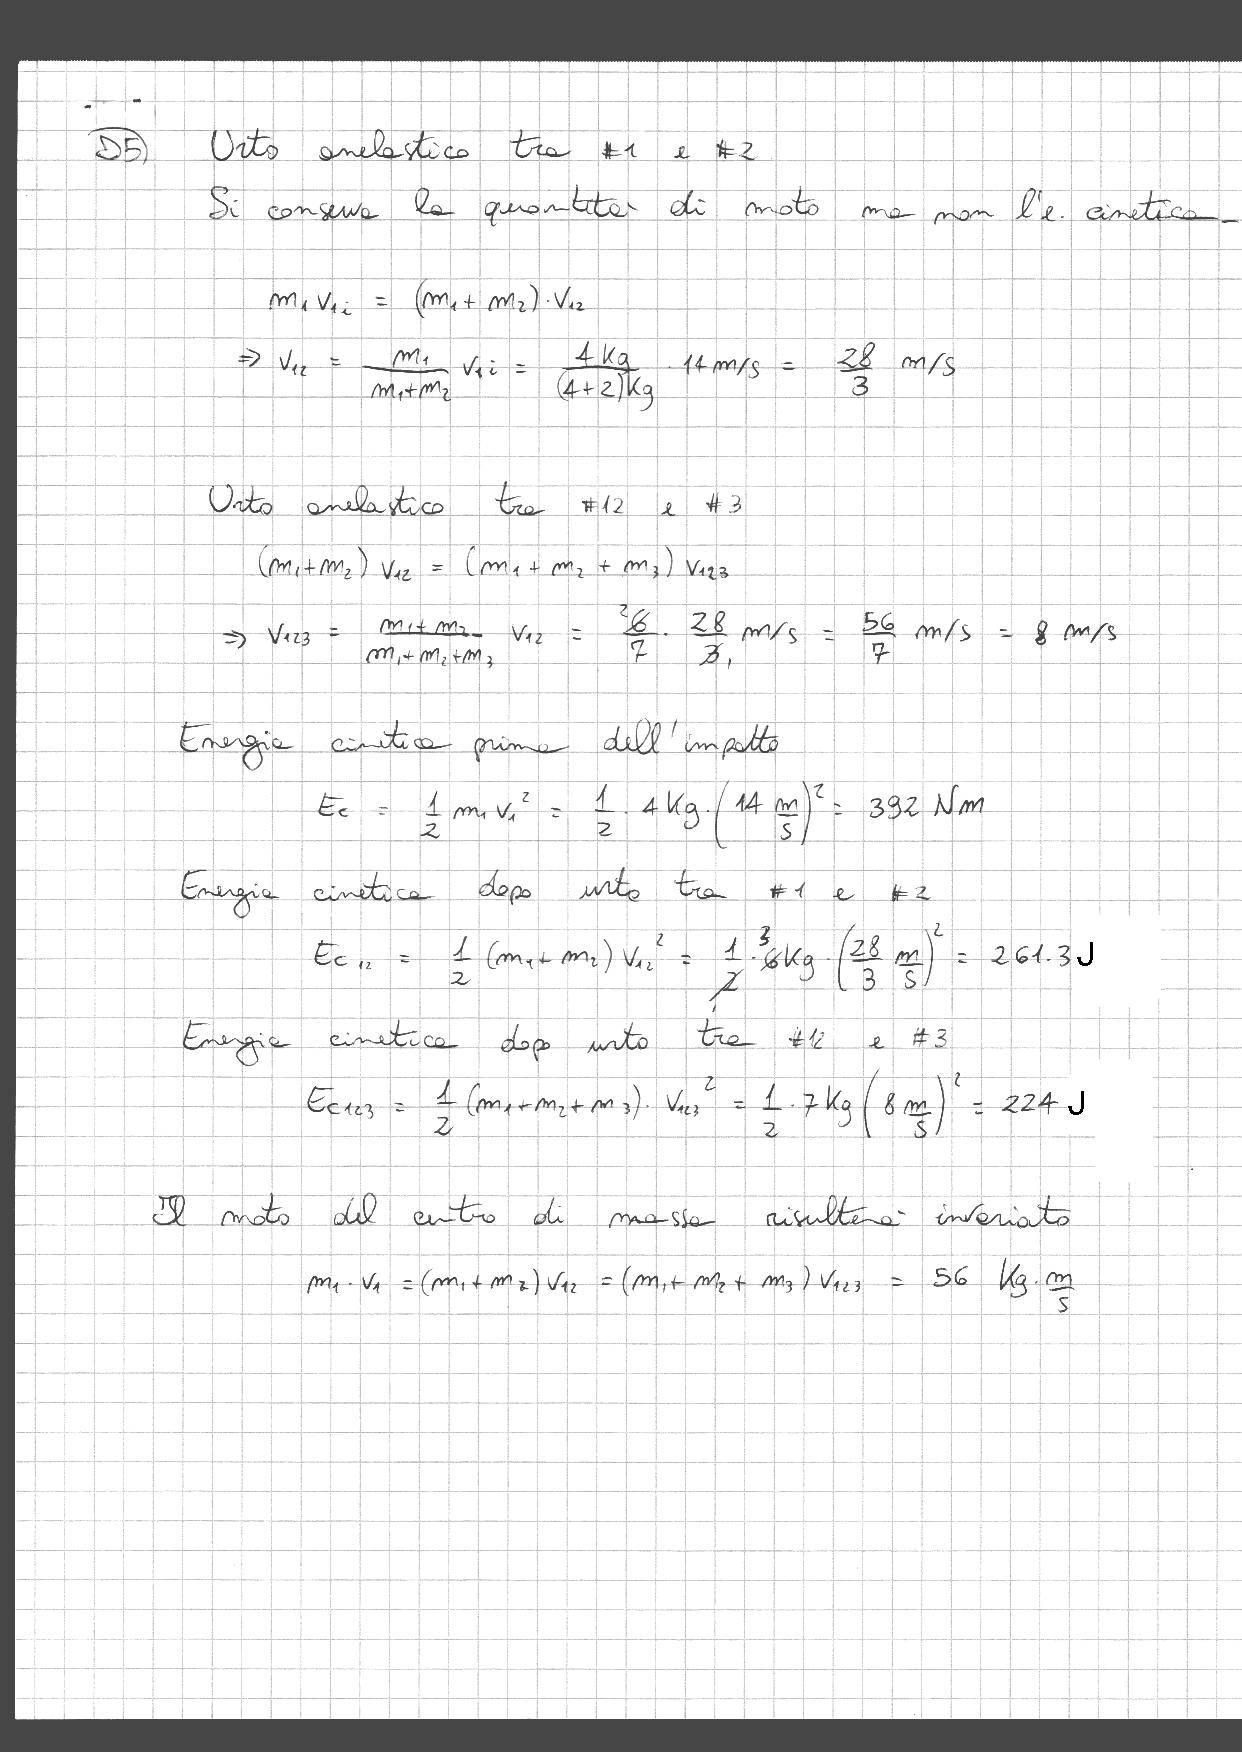 D5) Urto anelastico tra #1 e #2
Si conserva la quantità di moto ma non l'e. cinetica
m₁ v₁ᵢ = (m₁ + m₂) · v₁₂
⇒ v₁₂ = m₁/(m₁+m₂) v₁ᵢ = 4 Kg/(4+2)Kg · 14 m/s = 28/3 m/s
Urto anelastico tra #12 e #3
(m₁+m₂) v₁₂ = (m₁ + m₂ + m₃) v₁₂₃
⇒ v₁₂₃ = (m₁+m₂)/(m₁+m₂+m₃) v₁₂ = ²6/7 · 28/3₁ m/s = 56/7 m/s = 8 m/s
Energia cinetica prima dell'impatto
Ec = 1/2 m₁ v₁² = 1/2 · 4 Kg · (14 m/s)² = 392 Nm
Energia cinetica dopo urto tra #1 e #2
Ec₁₂ = 1/2 (m₁ + m₂) v₁₂² = 1/2₁ · ³6 Kg · (28/3 m/s)² = 261.3 J
Energia cinetica dopo urto tra #12 e #3
Ec₁₂₃ = 1/2 (m₁+m₂+m₃) · v₁₂₃² = 1/2 · 7 Kg (8 m/s)² = 224 J
Il moto del centro di massa risulterà invariato
m₁ · v₁ = (m₁ + m₂) v₁₂ = (m₁ + m₂ + m₃) v₁₂₃ = 56 Kg · m/s